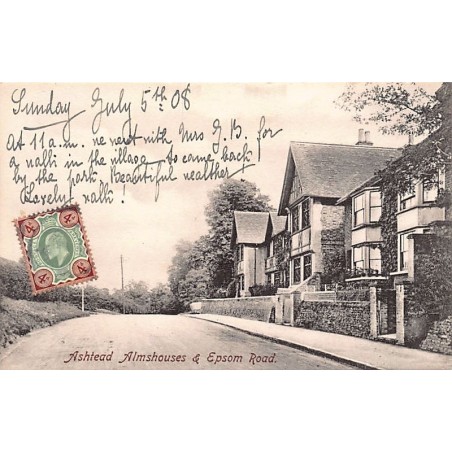 Sunday July 5th 08
At 11 a.m. we went with Mrs G. B. for
a walk in the village to come back
by the park. Beautiful weather
Lovely walk!
4d 4d
4d 4d
Ashtead Almshouses & Epsom Road.